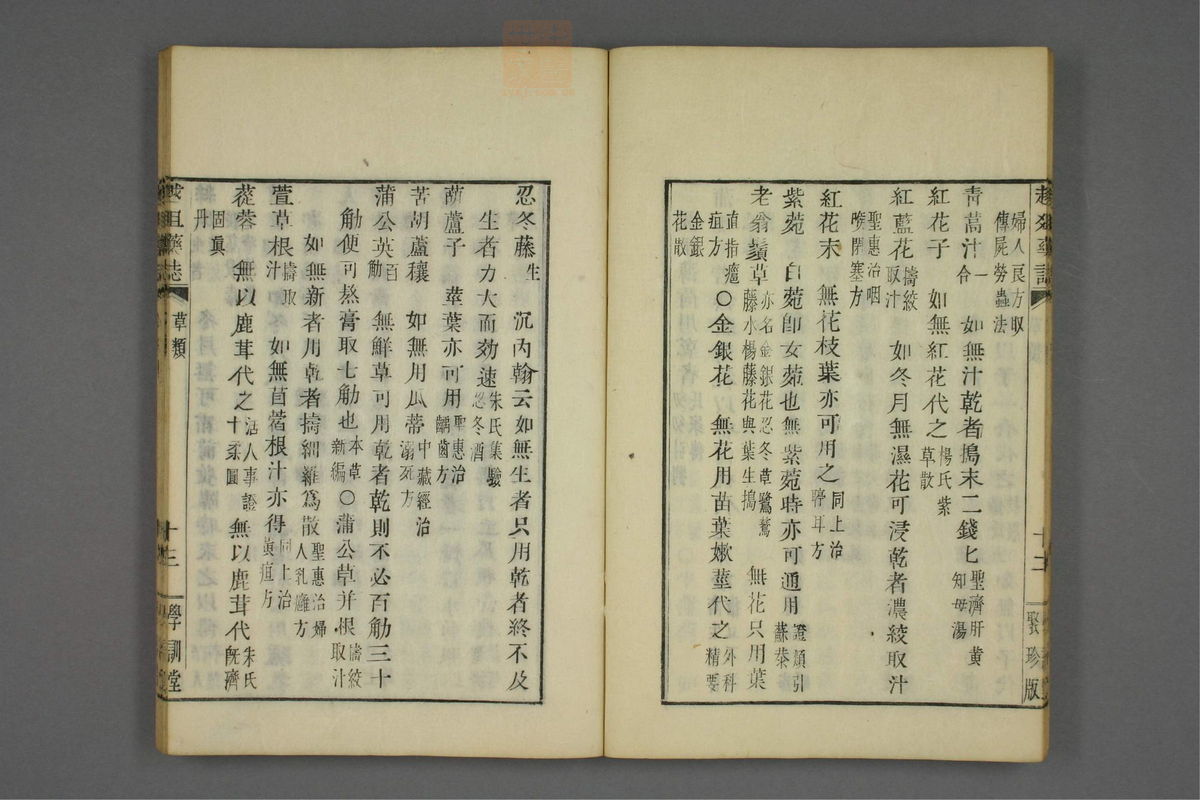 婦人良方取
傳屍勞蟲法
青蒿汁一合　如無汁乾者搗末二錢匕聖濟肝黄知母湯
紅花子　如無紅花代之楊氏紫草散
紅藍花擣絞取汁　如冬月無濕花可浸乾者濃絞取汁
聖惠治咽喉閉塞方
紅花末　無花枝葉亦可用之同上治聤耳方
紫菀　白菀即女菀也無紫菀時亦可通用證類引蘇恭
老翁鬚草亦名金銀花忍冬草鷺鶿藤水楊藤花與葉生搗　無花只用葉
直指癰疽方〇金銀花　無花用苗葉嫩莖代之外科精要
金銀花散
聚珍版
忍冬藤生　沉内翰云如無生者只用乾者終不及
生者力大而効速朱氏集驗忍冬酒
葫蘆子　葦葉亦可用聖惠治齲齒方
苦胡蘆穰　如無用瓜蒂中藏經治溺死方
蒲公英百觔　無鮮草可用乾者乾則不必百觔三十
觔便可熬膏取七觔也本草新編〇蒲公草并根擣絞取汁
如無新者用乾者擣細羅爲散聖惠治婦人乳癰方
萱草根擣取汁　如無苜蓿根汁亦得同上治黄疸方
蓯蓉　無以鹿茸代之活人事證十柔圓無以鹿茸代朱氏既濟
固眞丹
草類
十三
學訓堂